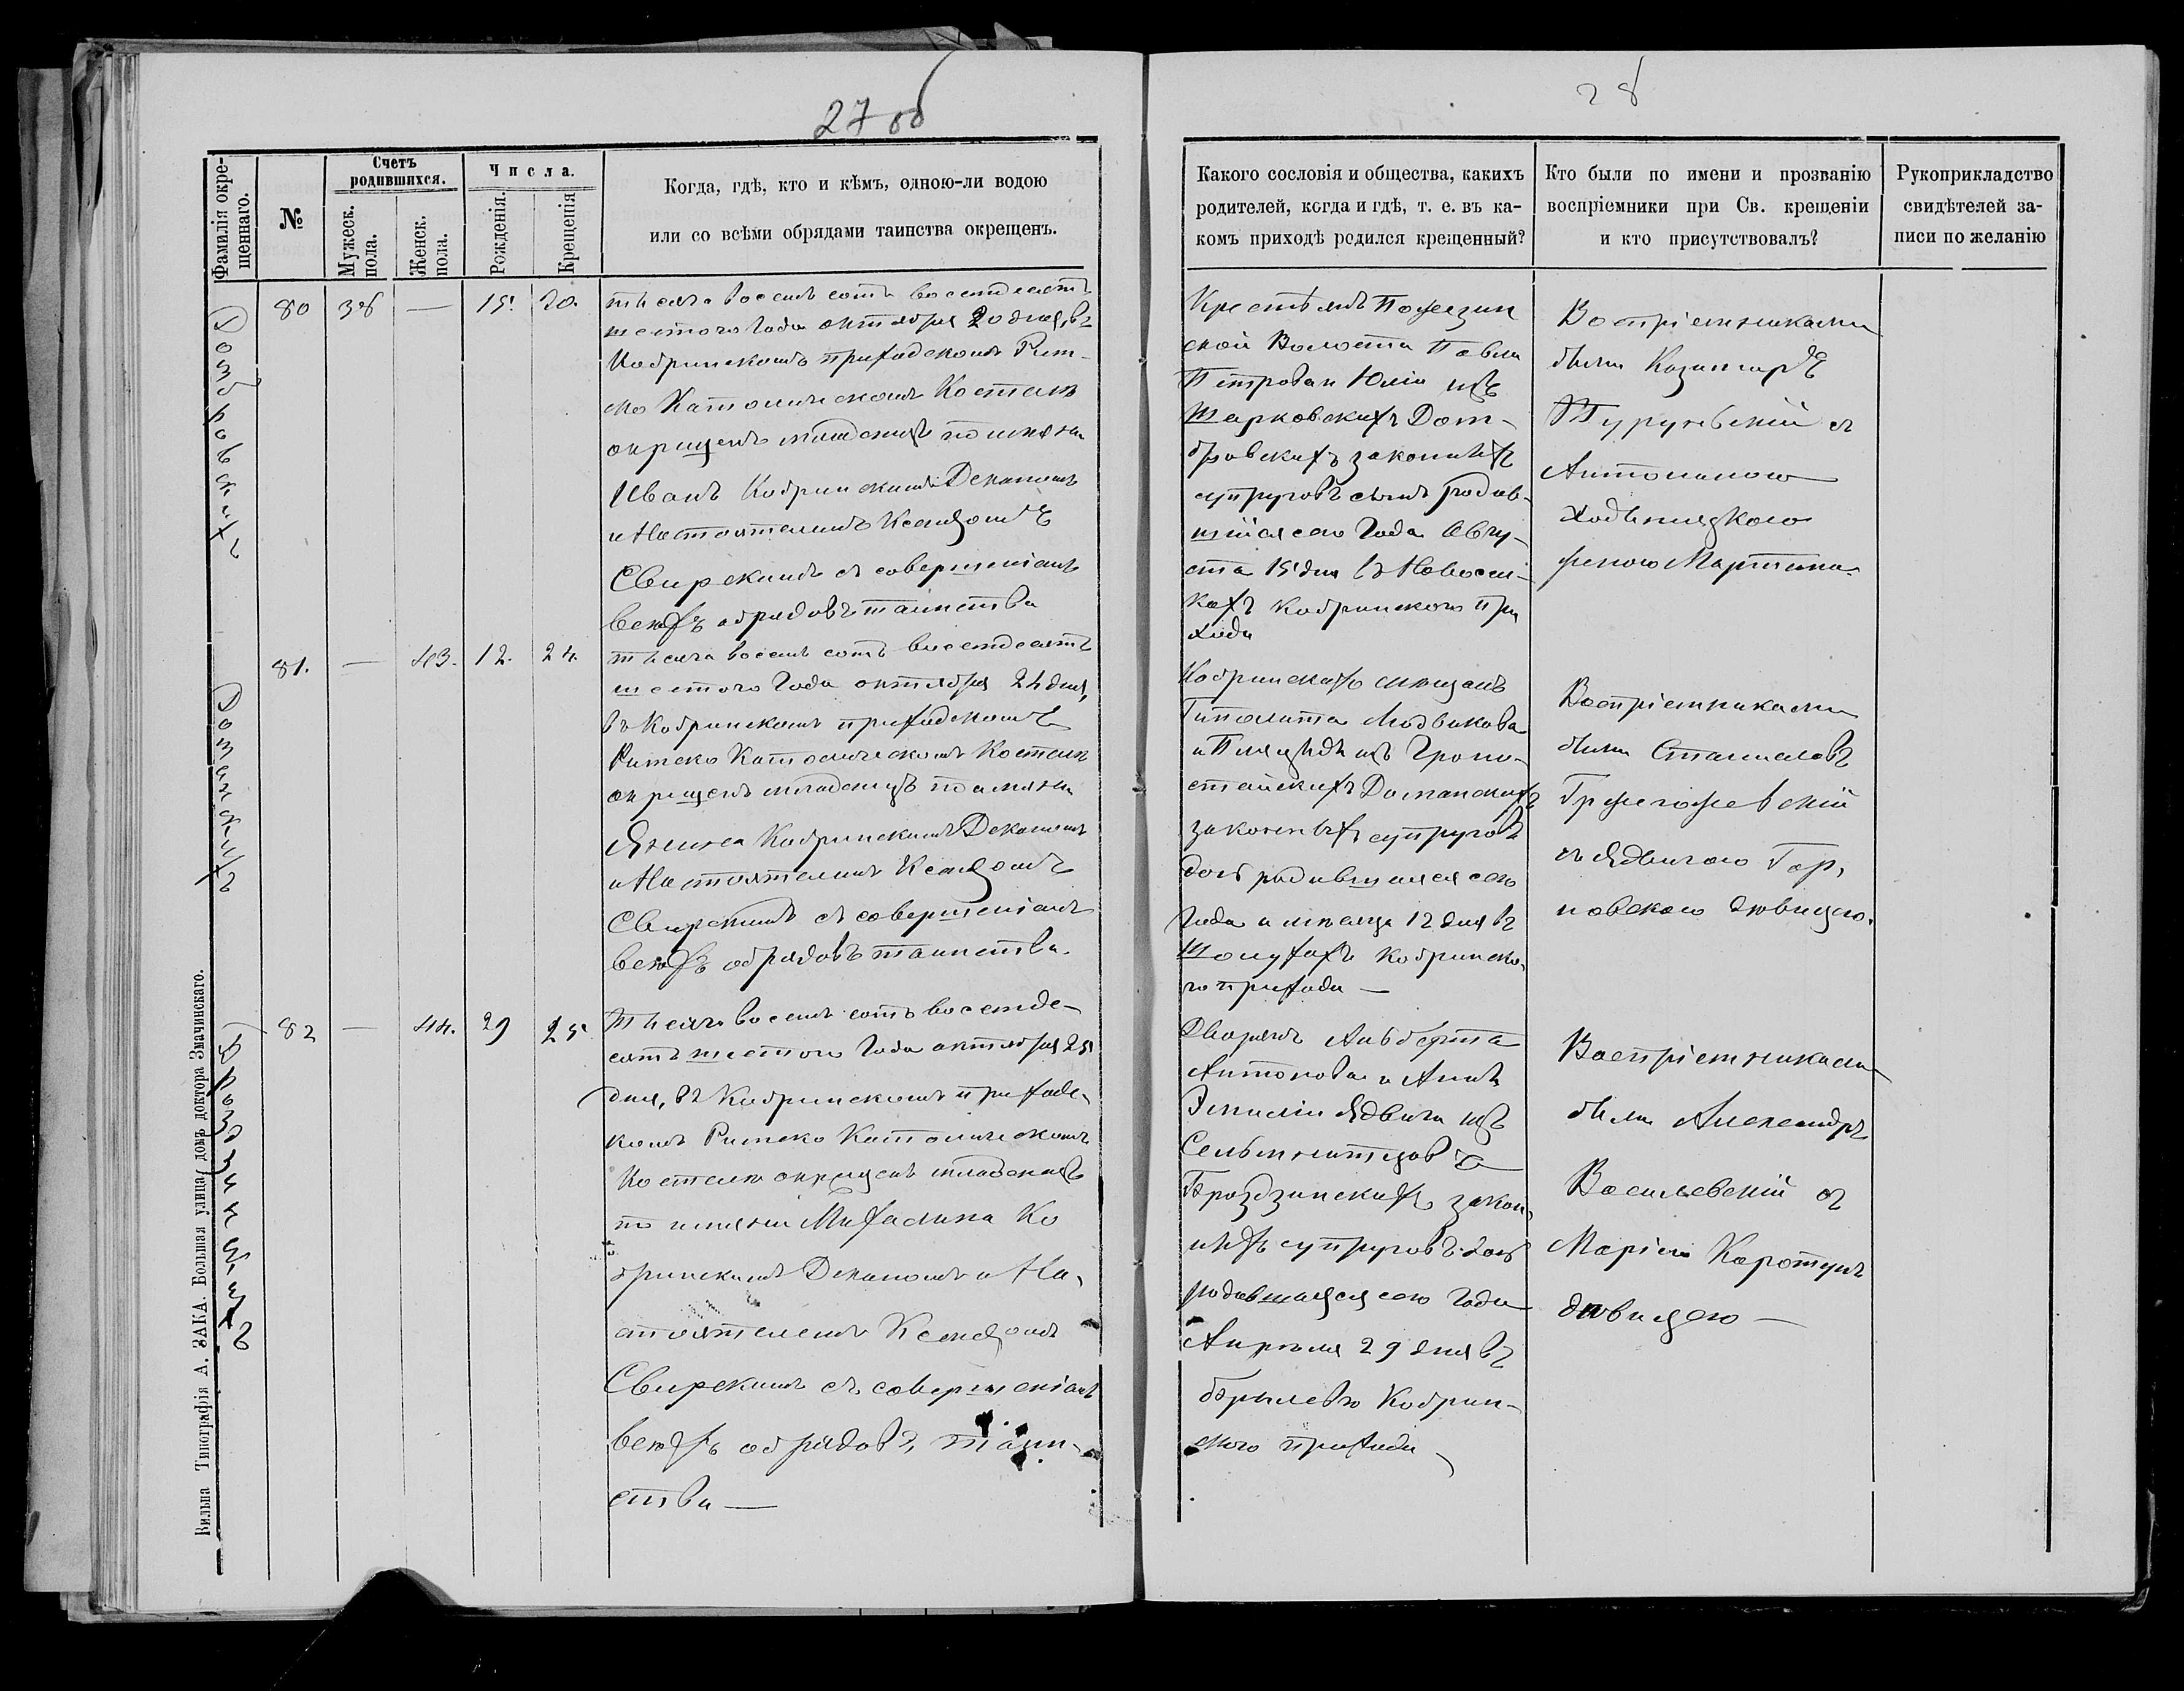 27 об
28
Фамилія окре-
щеннаго.
№
Счетъ
родившихся.
Мужеск.
пола.
Женск.
пола.
Числа.
Рожденія.
Крещенія
Когда, гдѣ, кто и кѣмъ, одною-ли водою
или со всѣми обрядами таинства окрещенъ.
Какого сословія и общества, какихъ
родителей, когда и гдѣ, т. е. въ ка-
комъ приходѣ родился крещенный?
Кто были по имени и прозванію
воспріемники при Св. крещеніи
и кто присутствовалъ?
Рукоприкладство
свидѣтелей за-
писи по желанію
Домбровскихъ
80 38 — 15. 20.
тысяча восемь сотъ восемдесятъ
шестого Года октября 20 дня, въ
Кобринскомъ приходскомъ Рим-
ско Католическомъ Костелѣ
окрещенъ младенецъ по имени
Иванъ Кобринскимъ Деканомъ
и Настоятелемъ Ксендзомъ
Свирскимъ съ совершеніемъ
всѣхъ обрядовъ таинства
Крестьянъ
ской Волости Павла
Петрова и Юліи изъ
Шарковскихъ Дом-
бровскихъ законныхъ
супруговъ сынъ родив-
шійся сего Года Авгу-
ста 15 дня въ Новосел-
кахъ Кобринского при
хода
Воспріемниками
были Казимиръ
съ
Антониною
женою Мартина
Доманскихъ
81. — 43. 12. 24.
тысяча восемь сотъ восемдесятъ
шестого Года октября 24 дня,
въ Кобринскомъ приходскомъ
Римско Католическомъ Костелѣ
окрещенъ младенецъ по имени
Янина Кобринскимъ Деканомъ
и Настоятелемъ Ксендзомъ
Свирскимъ съ совершеніемъ
всѣхъ обрядовъ таинства.
Кобринскихъ мѣщанъ
Гиполита Людвикова
и изъ Гроно-
стайскихъ Доманскихъ
законныхъ супруговъ
дочь родившаяся сего
Года и мѣсяца 12 дня въ
Кобринско-
го прихода —
Воспріемниками
были Станиславъ
Гржегожевскій
съ Ядвигою Гор-
новскою дѣвицею.
Броздзинскихъ
82 — 44. 29 25
Тысяча восемь сотъ восемде-
сятъ шестого Года октября 25
дня, въ Кобринскомъ приход-
комъ Римско Католическомъ
Костелѣ окрещенъ младенецъ
по имени Михалина Ко
бринскимъ Деканомъ и На-
стоятелемъ Ксендзомъ
Свирскимъ съ совершеніемъ
всѣхъ обрядовъ таин-
ства —
Дворянъ Альберта
Антонова и Анны
Эмиліи Ядвиги изъ
Броздзинскихъ закон-
ныхъ супруговъ дочь
родившаяся сего Года
Апрѣля 29 дня въ
Кобрин-
ского прихода
Воспріемниками
были Александръ
Василевскій съ
Маріею Каротунъ
дѣвицею —
Вильна Типографія А. ЗАКА. Большая улица, домъ доктора Значинскаго.